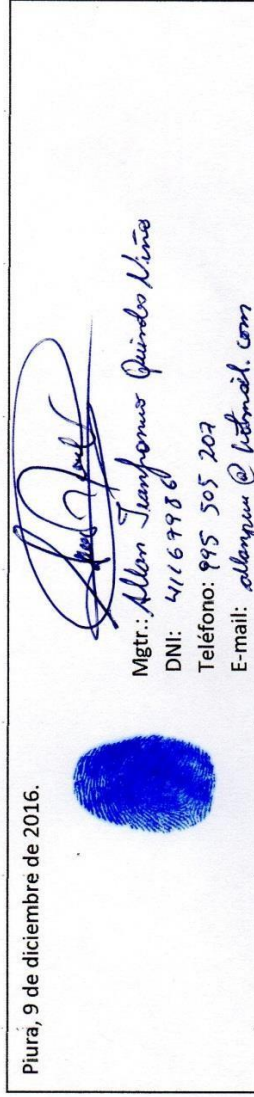 Piura, 9 de diciembre de 2016.
Mgtr.: Allan Jeanfranco Quindes Niño
DNI: 41169986
Teléfono: 995 505 207
E-mail: @ hotmail.com